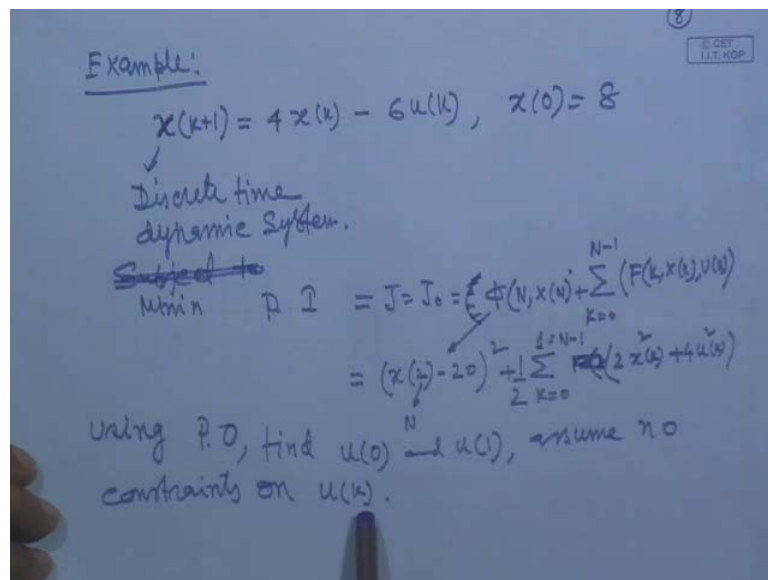 8
© CET
I.I.T. KGP
Example:
x(k+1) = 4x(k) - 6u(k), x(0) = 8
Discrete time
dynamic System.
Subject to
Min P I = J = J₀ = φ(N, x(N)) + Σ_{k=0}^{N-1} (F(k, x(k), u(k))
= (x(2) - 20)² + 1/2 Σ_{k=0}^{1=N-1} (2x²(k) + 4u²(k))
N
Using P.O, find u(0) and u(1), assume no
constraints on u(k).